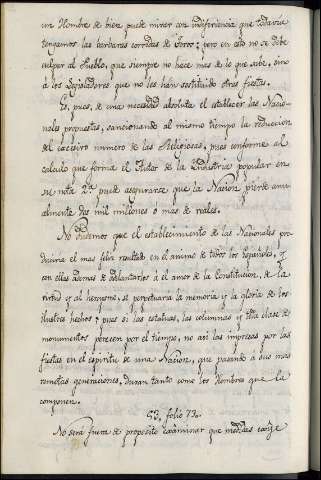 un Hombre de bien puede mirar con indiferiencia que todavia
tengamos las barbaras corridas de Toros; pero en esto no se debe
culpar al Pueblo, que siempre no hace mas de lo que sabe, sino
à los Legisladores que no les han sostituido otras fiestas.
Es, pues, de una necesidad absoluta el establecer las Nacio-
nales propuestas, sancionando al mismo tiempo la reduccion
del excesivo numero de las Religiosas, pues conforme al
calculo que forma el Autor de la Industria popular en
su nota 2ª puede asegurarse que la Nacion pierde anu-
almente dos mil millones ò mas de reales.
No dudemos que el establecimiento de las Nacionales pro-
duciria el mas feliz resultado en el animo de todos los Españoles, y
con ellas ademas de adelantarlos à el amor de la Constitucion, de la
virtud y al heroismo, se perpetuara la memoria y la gloria de los
ilustres hechos; pues si las estatuas, las columnas y otra clase de
monumentos perecen por el tiempo, no asi las impresas por las
fiestas en el espiritu de una Nacion, que pasando à sus mas
remotas generaciones, duran tanto como los Hombres que la
componen.
53. folio 73.
No será fuera de proposito examinar que medidas exige